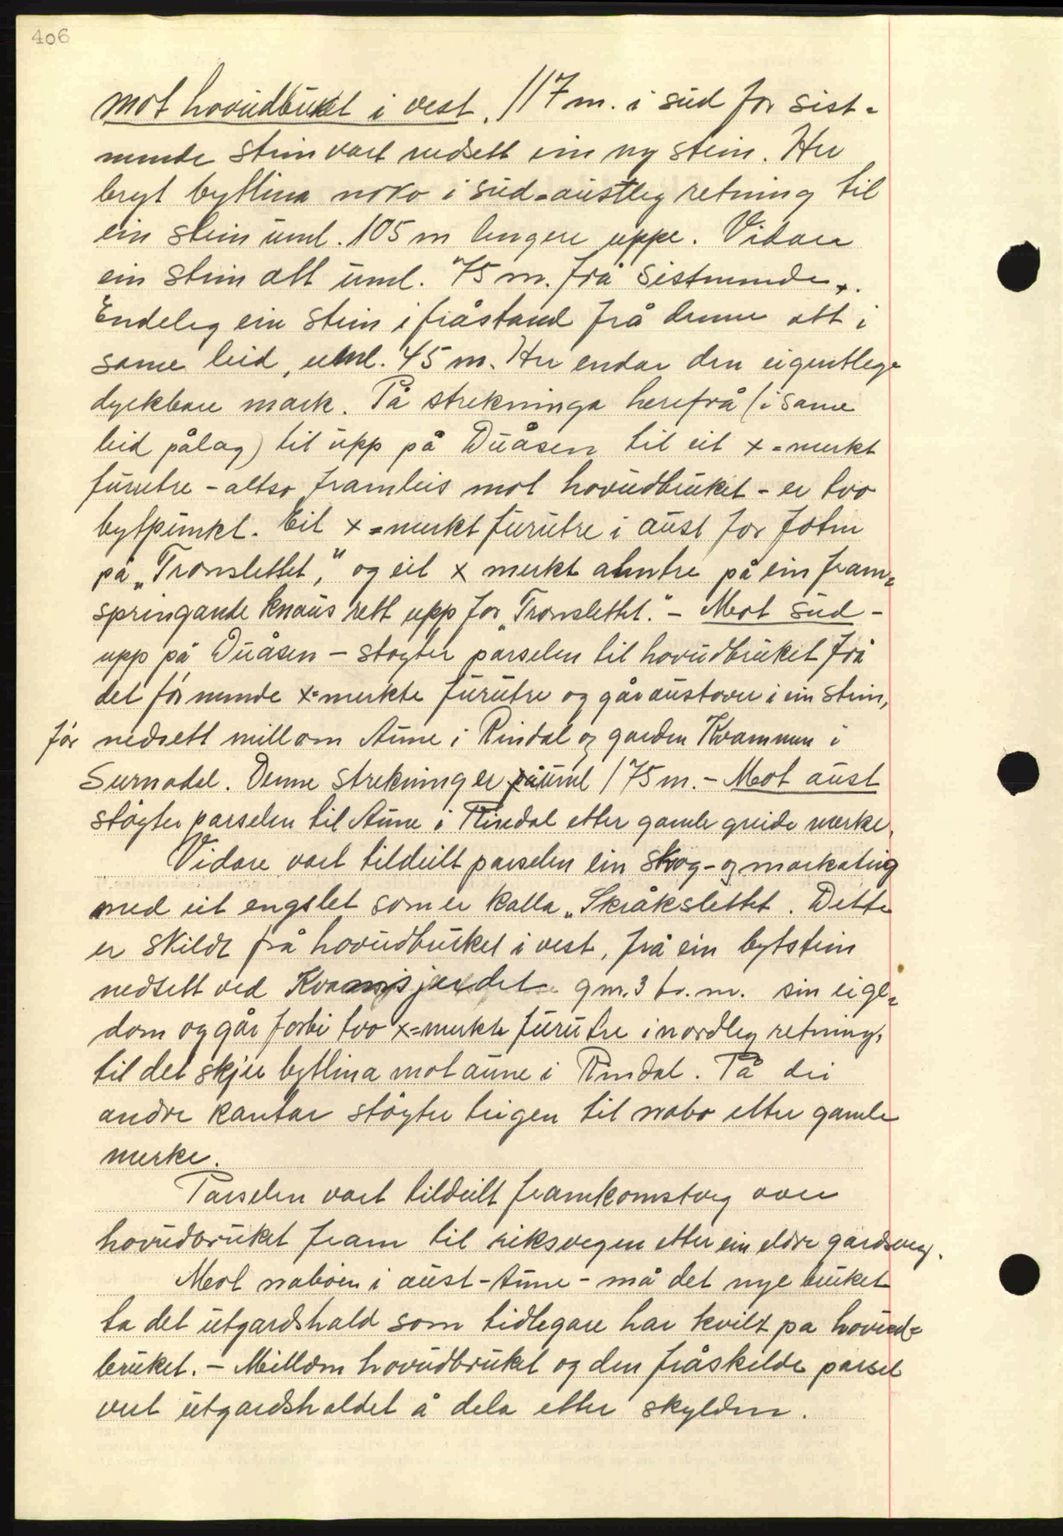 406
mot hovudbruket i vest. 117 m. i sud for sist=
nemde stein vart nedsett ein ny stein. Her
bryt bytlina noko i sud-austleg retning til
ein stein uml. 105 m lengere uppe. Vidare
ein stein att uml. 75 m. frå sistnemde.
Endeleg ein stein i fråstand frå denne att i
same leid, uml. 45 m. Her endar den eigentlege
dyrkbare mark. På strekninga herefrå (i same
leid pålag) til upp på Duåsen til eit x=merkt
furutre - altso framleis mot hovudbruket - er tvo
bytpunkt. Eit x=merkt furutre i aust for
på „Tronslettet," og eit x merkt almtre på ein fram=
springande knaus rett upp for „Tronslettet." - Mot sud -
upp på Duåsen - støyter parselen til hovudbruket frå
det før nemnde x=merkte furutre og går austover i ein stein,
før nedsett millom Aune i Rindal og garden Kvammen i
Surnadal. Denne strekning er uml 175 m. - Mot aust
støyter parselen til Aune i Rindal etter gamle greide merke.
Vidare vart tildeilt parselen ein skog- og markateig
med eit engslet som er kalla „Skråkslettet. Dette
er skildt frå hovudbruket i vest, frå ein bytstein
nedsett ved gm. 3 br. m. sin eige=
dom og går forbi tvo x=merkte furutre i nordleg retning,
til det skjer bytlina mot aune i Rindal. På dei
andre kantar støyter teigen til nabo etter gamle
merke.
Parselen vart tildeilt framkomstveg over
hovudbruket fram til riksvegen etter ein eldre gardsveg.
Mot naboen i aust - Aune - må det nye bruket
ta det utgardshald som tidlegare har kvilt på hovud=
bruket. - Millom hovudbruket og den fråskilde parsel
vert utgardshaldet å dela etter skylden.